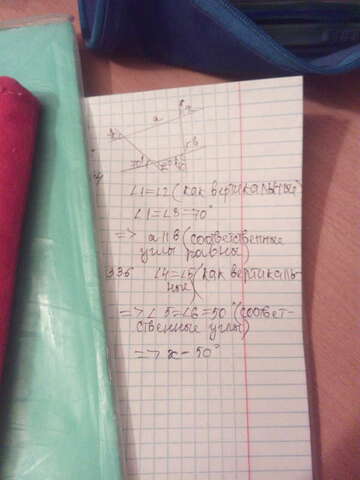 a
∠1=∠2 (как вертикальный)
∠1=∠3=70°
=> a || в (соответственные
углы равны)
∠4=∠5 (как вертикаль-
ный)
=> ∠5=∠6=50° (соответ-
ственные углы)
=> x - 50°